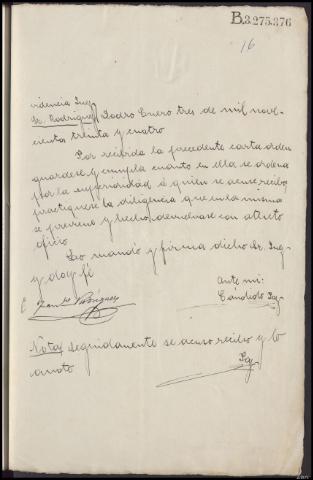 B.3.275.376
16
videncia Juez
Sr. Rodriguez Padro Enero tres de mil nove-
cientos treinta y cuatro
Por recibida la precedente carta orden
guardese y cumpla cuanto en ella se ordena
por la superioridad á quien se acuse recibo
practiquese la diligencia que en la misma
se previene y hecho devuelvase con atto
oficio
Lo mandó y firma dicho Sr. Juez
y doy fé
Ante mi:
Rodriguez
Cándido
Nota Seguidamente se acusa recibo y lo
anoto